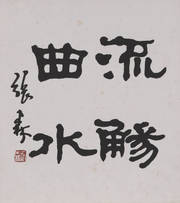 流觴
曲水
張森